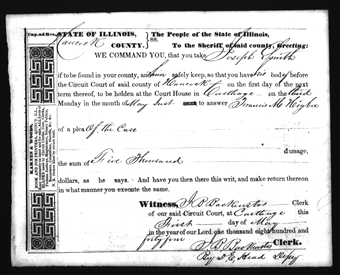 Cap. ad Res. STATE OF ILLINOIS, The People of the State of Illinois,
Hancock COUNTY. SS. To the Sheriff of said county, Greeting:
WE COMMAND YOU, that you take Joseph Smith
if to be found in your county, and him safely keep, so that you have his body before
the Circuit Court of said county of Hancock on the first day of the next
term thereof, to be holden at the Court House in Carthage on the third
Monday in the month of May Inst to answer Francis M Higbee
of a plea Of the Case
damage,
the sum of Five Thousand
dollars, as he says. And have you then there this writ, and make return thereon
in what manner you execute the same.
Witness, J B Backenstos Clerk
of our said Circuit Court, at Carthage this
First day of May
in the year of our Lord one thousand eight hundred and
forty four
J. B. Backenstos Clerk.
By D E Head Depy